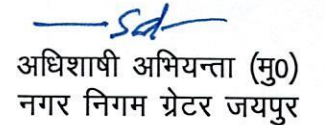 Sd
अधिशाषी अभियन्ता (मु0)
नगर निगम ग्रेटर जयपुर